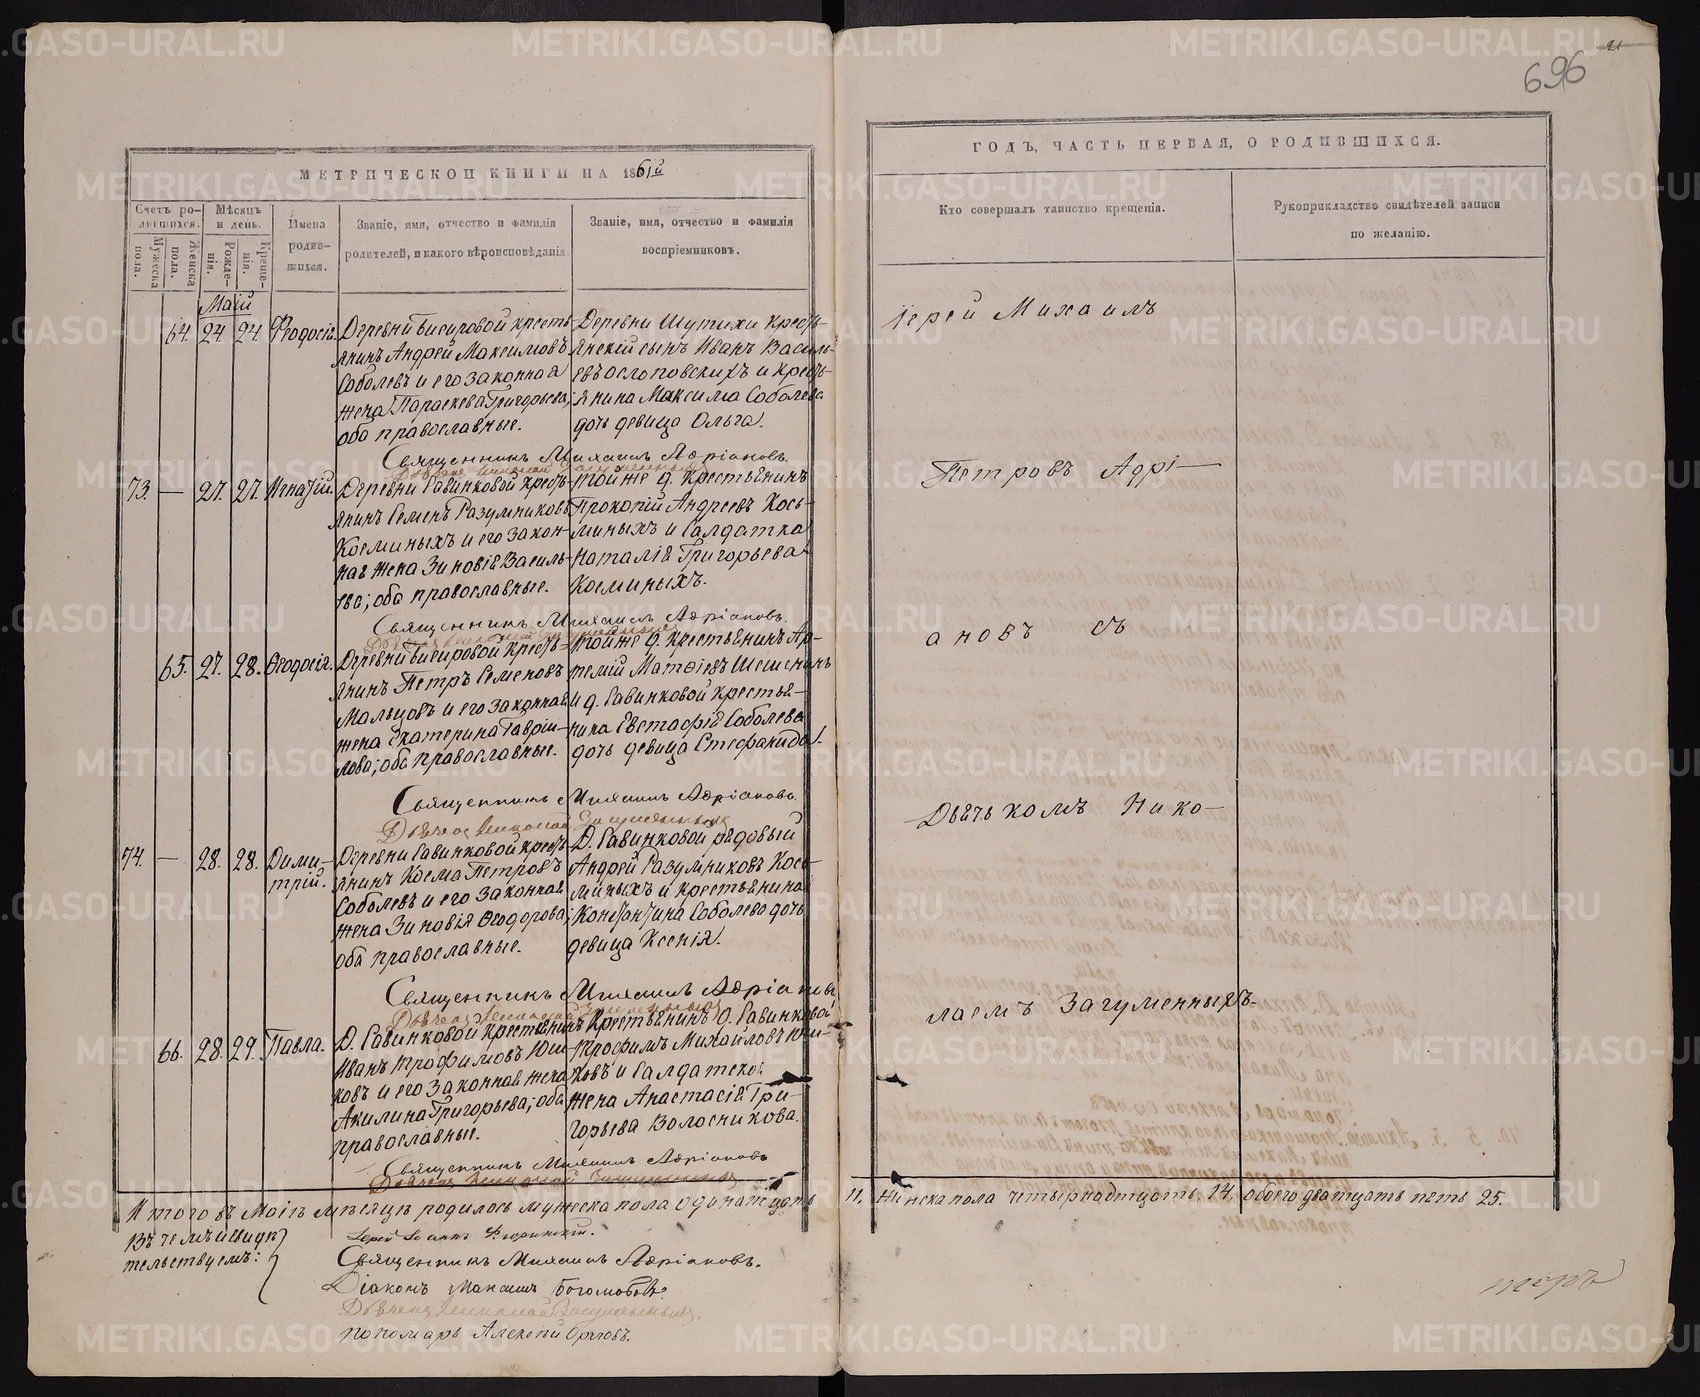 696
21
МЕТРИЧЕСКОЙ КНИГИ НА 1861й
ГОДЪ, ЧАСТЬ ПЕРВАЯ, О РОДИВШИХСЯ.
Счетъ ро-
дившихся.
Мужеска
пола.
Женска
пола.
Мѣсяцъ
и день.
Рожде-
нія.
Креще-
нія.
Имена
родив-
шихся.
Званіе, имя, отчество и фамилія
родителей, и какого вѣроисповѣданія
Званіе, имя, отчество и фамилія
воспріемниковъ.
Кто совершалъ таинство крещенія.
Рукоприкладство свидѣтелей записи
по желанію.
Маій
64. 24. 24. Феодосія.
Деревни Бисировой кресть-
янинъ Андрей Максимовъ
Соболевъ и его законная
жена Параскева Григорьева;
оба православные.
Деревни Шутихи кресть-
янскій сынъ Иванъ Василь-
евъ Ослоповскихъ и кресть-
янина Максима Соболева
дочь девица Ольга.
Священникъ Михаилъ Адріановъ.
73. — 27. 27. Игнатій.
Деревни Савинковой кресть-
янинъ Семенъ Разумниковъ
Косминыхъ и его закон-
ная жена Зиновія Василь-
ева; оба православные.
Той же д. крестьянинъ
Прокопій Андреевъ Кось-
миныхъ и Салдатка
Наталія Григорьева
Косминыхъ.
Священникъ Михаилъ Адріановъ.
65. 27. 28. Ѳеодосія.
Деревни Бисировой кресть-
янинъ Петръ Семеновъ
Мальцовъ и его законная
жена Екатерина Гаврии-
лова; оба православные.
Той же д. крестьянинъ Ар-
темій Матѳіевъ Шешенинъ
и д. Савинковой крестья-
нина Евстафія Соболева
дочь девица Стефанида.
Священникъ Михаилъ Адріановъ.
74. — 28. 28. Дими-
трій.
Деревни Савинковой кресть-
янинъ Косма Петровъ
Соболевъ и его законная
жена Зиновія Ѳеодорова;
оба православные.
Д. Савинковой рядовый
Андрей Разумниковъ Кось-
миныхъ и крестьянина
Константина Соболева дочь
девица Ксенія.
Священникъ Михаилъ Адріановъ
66. 28. 29. Павла.
Д. Савинковой крестьянинъ
Иванъ Трофимовъ Юш-
ковъ и его законная жена
Акилина Григорьева; оба
православные.
Крестьянинъ д. Савинковой
Трофимъ Михайловъ Юш-
ковъ и Салдатска
жена Анастасія Гри-
горьева Волосникова.
Священникъ Михаилъ Адріановъ
Іерей Михаилъ
Петровъ Адрі-
ановъ съ
Дьячкомъ Нико-
лаемъ Загуменныхъ.
Итого въ Маіѣ мѣсяцѣ родилось мужеска пола одинатцать
11. Женска пола четырнадтцать. 14. обоего дватцать пять 25.
Въ чемъ и свидѣ-
тельствуемъ:
Священникъ Михаилъ Адріановъ.
Діаконъ Максимъ Богомоловъ.
Дьячекъ Николай Загуменныхъ.
пономарь Алексій Орловъ.
METRIKI.GASO-URAL.RU